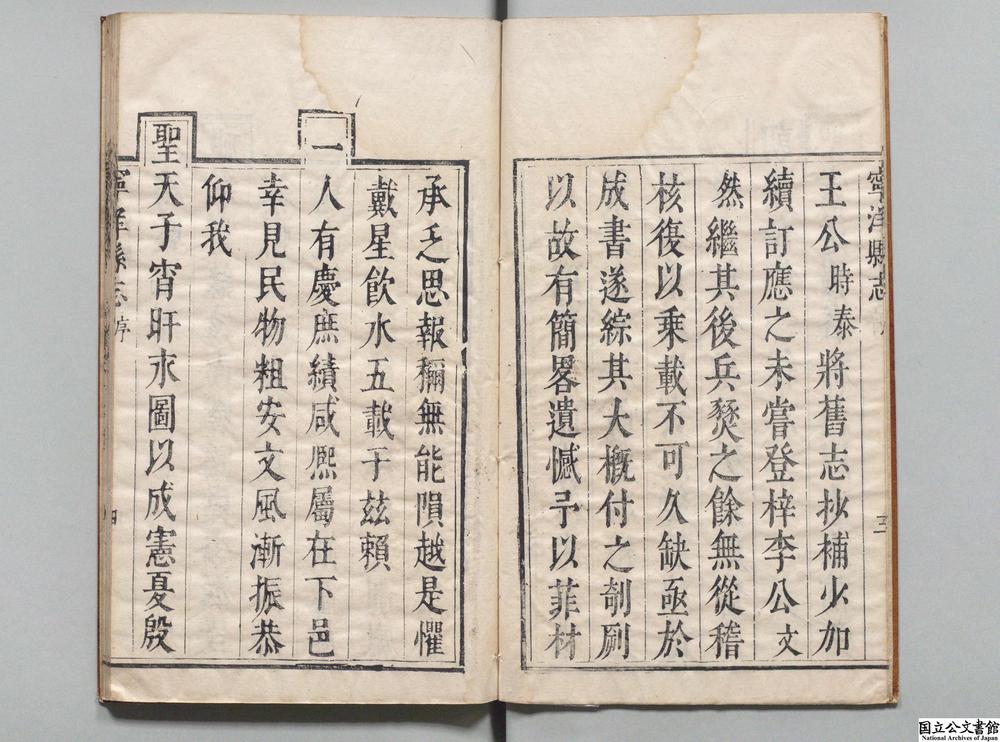 寧洋縣志
王公時泰將舊志抄補少加
續訂應之未嘗登梓李公文
然繼其後兵燹之餘無從稽
核復以乗載不可久缺亟於
成書遂綜其大概付之剞劂
以故有簡畧遺憾予以菲材
承乏思報稱無能隕越是懼
戴星飲水五載于兹賴
一
人有慶庶績咸熙屬在下邑
幸見民物粗安文風漸振恭
仰我
聖
天子宵旰永圖以成憲夏殷
寧洋縣志 序
国立公文書館
National Archives of Japan